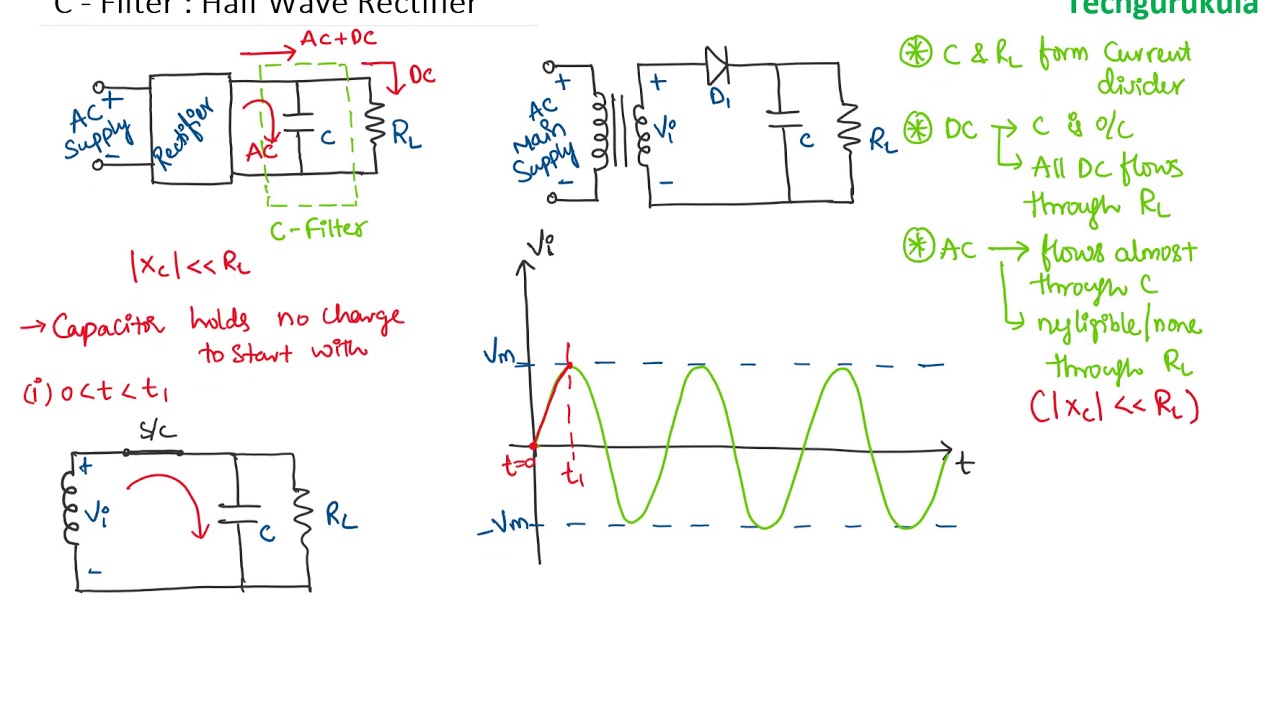 C - Filter : Half Wave Rectifier
Techgurukula
AC+DC
DC
AC Supply
+
-
Rectifier
AC
C
RL
C-Filter
|Xc| << RL
→ Capacitor holds no charge
to start with
(i) 0<t<t1
S/C
+
Vi
-
C
RL
AC
Main
Supply
+
-
+
Vi
-
D1
C
RL
Vi
Vm
-Vm
t=0
t1
t
* C & RL form Current
divider
* DC → C is o/c
↳ All DC flows
through RL
* AC → flows almost
through C
↳ negligible/none
through RL
(|Xc| << RL)